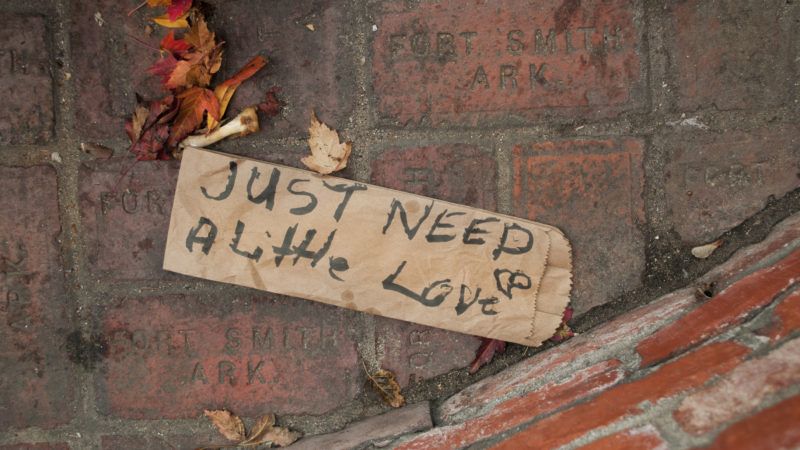 FORT SMITH
ARK.
FORT
FORT
JUST NEED
A Little Love
FORT SMITH
ARK